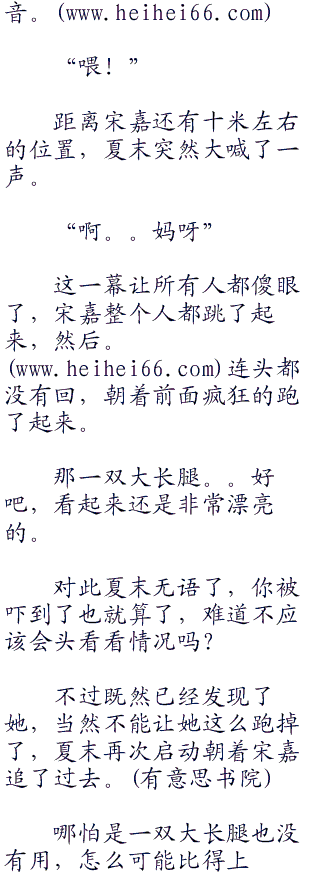 音。(www.heihei66.com)
“喂！”
距离宋嘉还有十米左右
的位置，夏末突然大喊了一
声。
“啊。。妈呀”
这一幕让所有人都傻眼
了，宋嘉整个人都跳了起
来，然后。
(www.heihei66.com)连头都
没有回，朝着前面疯狂的跑
了起来。
那一双大长腿。。好
吧，看起来还是非常漂亮
的。
对此夏末无语了，你被
吓到了也就算了，难道不应
该会头看看情况吗？
不过既然已经发现了
她，当然不能让她这么跑掉
了，夏末再次启动朝着宋嘉
追了过去。(有意思书院)
哪怕是一双大长腿也没
有用，怎么可能比得上